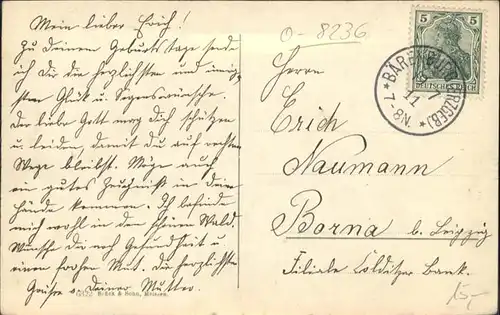 Mein lieber Erich!
Zu deinem Geburtstage sende
ich dir die herzlichsten und innig-
sten Glück u. Segenswünsche.
Der liebe Gott mög dich schützen
u. leiden, damit du auf rechtem
Wege bleibst. Möge auch
ein gutes Zeugnis in deine
Hände kommen. Ich befinde
mich wohl in dem schönen Wald.
Wünsche dir noch Gesundheit u.
einen frohen Mut. Die herzlichsten
Grüße v. deiner Mutter.
Brück & Sohn, Meissen.
0-8236
5 5
DEUTSCHES REICH
* BÄRENBURG *
7-8N.
Herrn
Erich
Naumann
Borna b. Leipzig
Filiale Colditzer Bank.
15,-